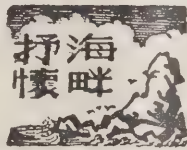 海畔
抒懷